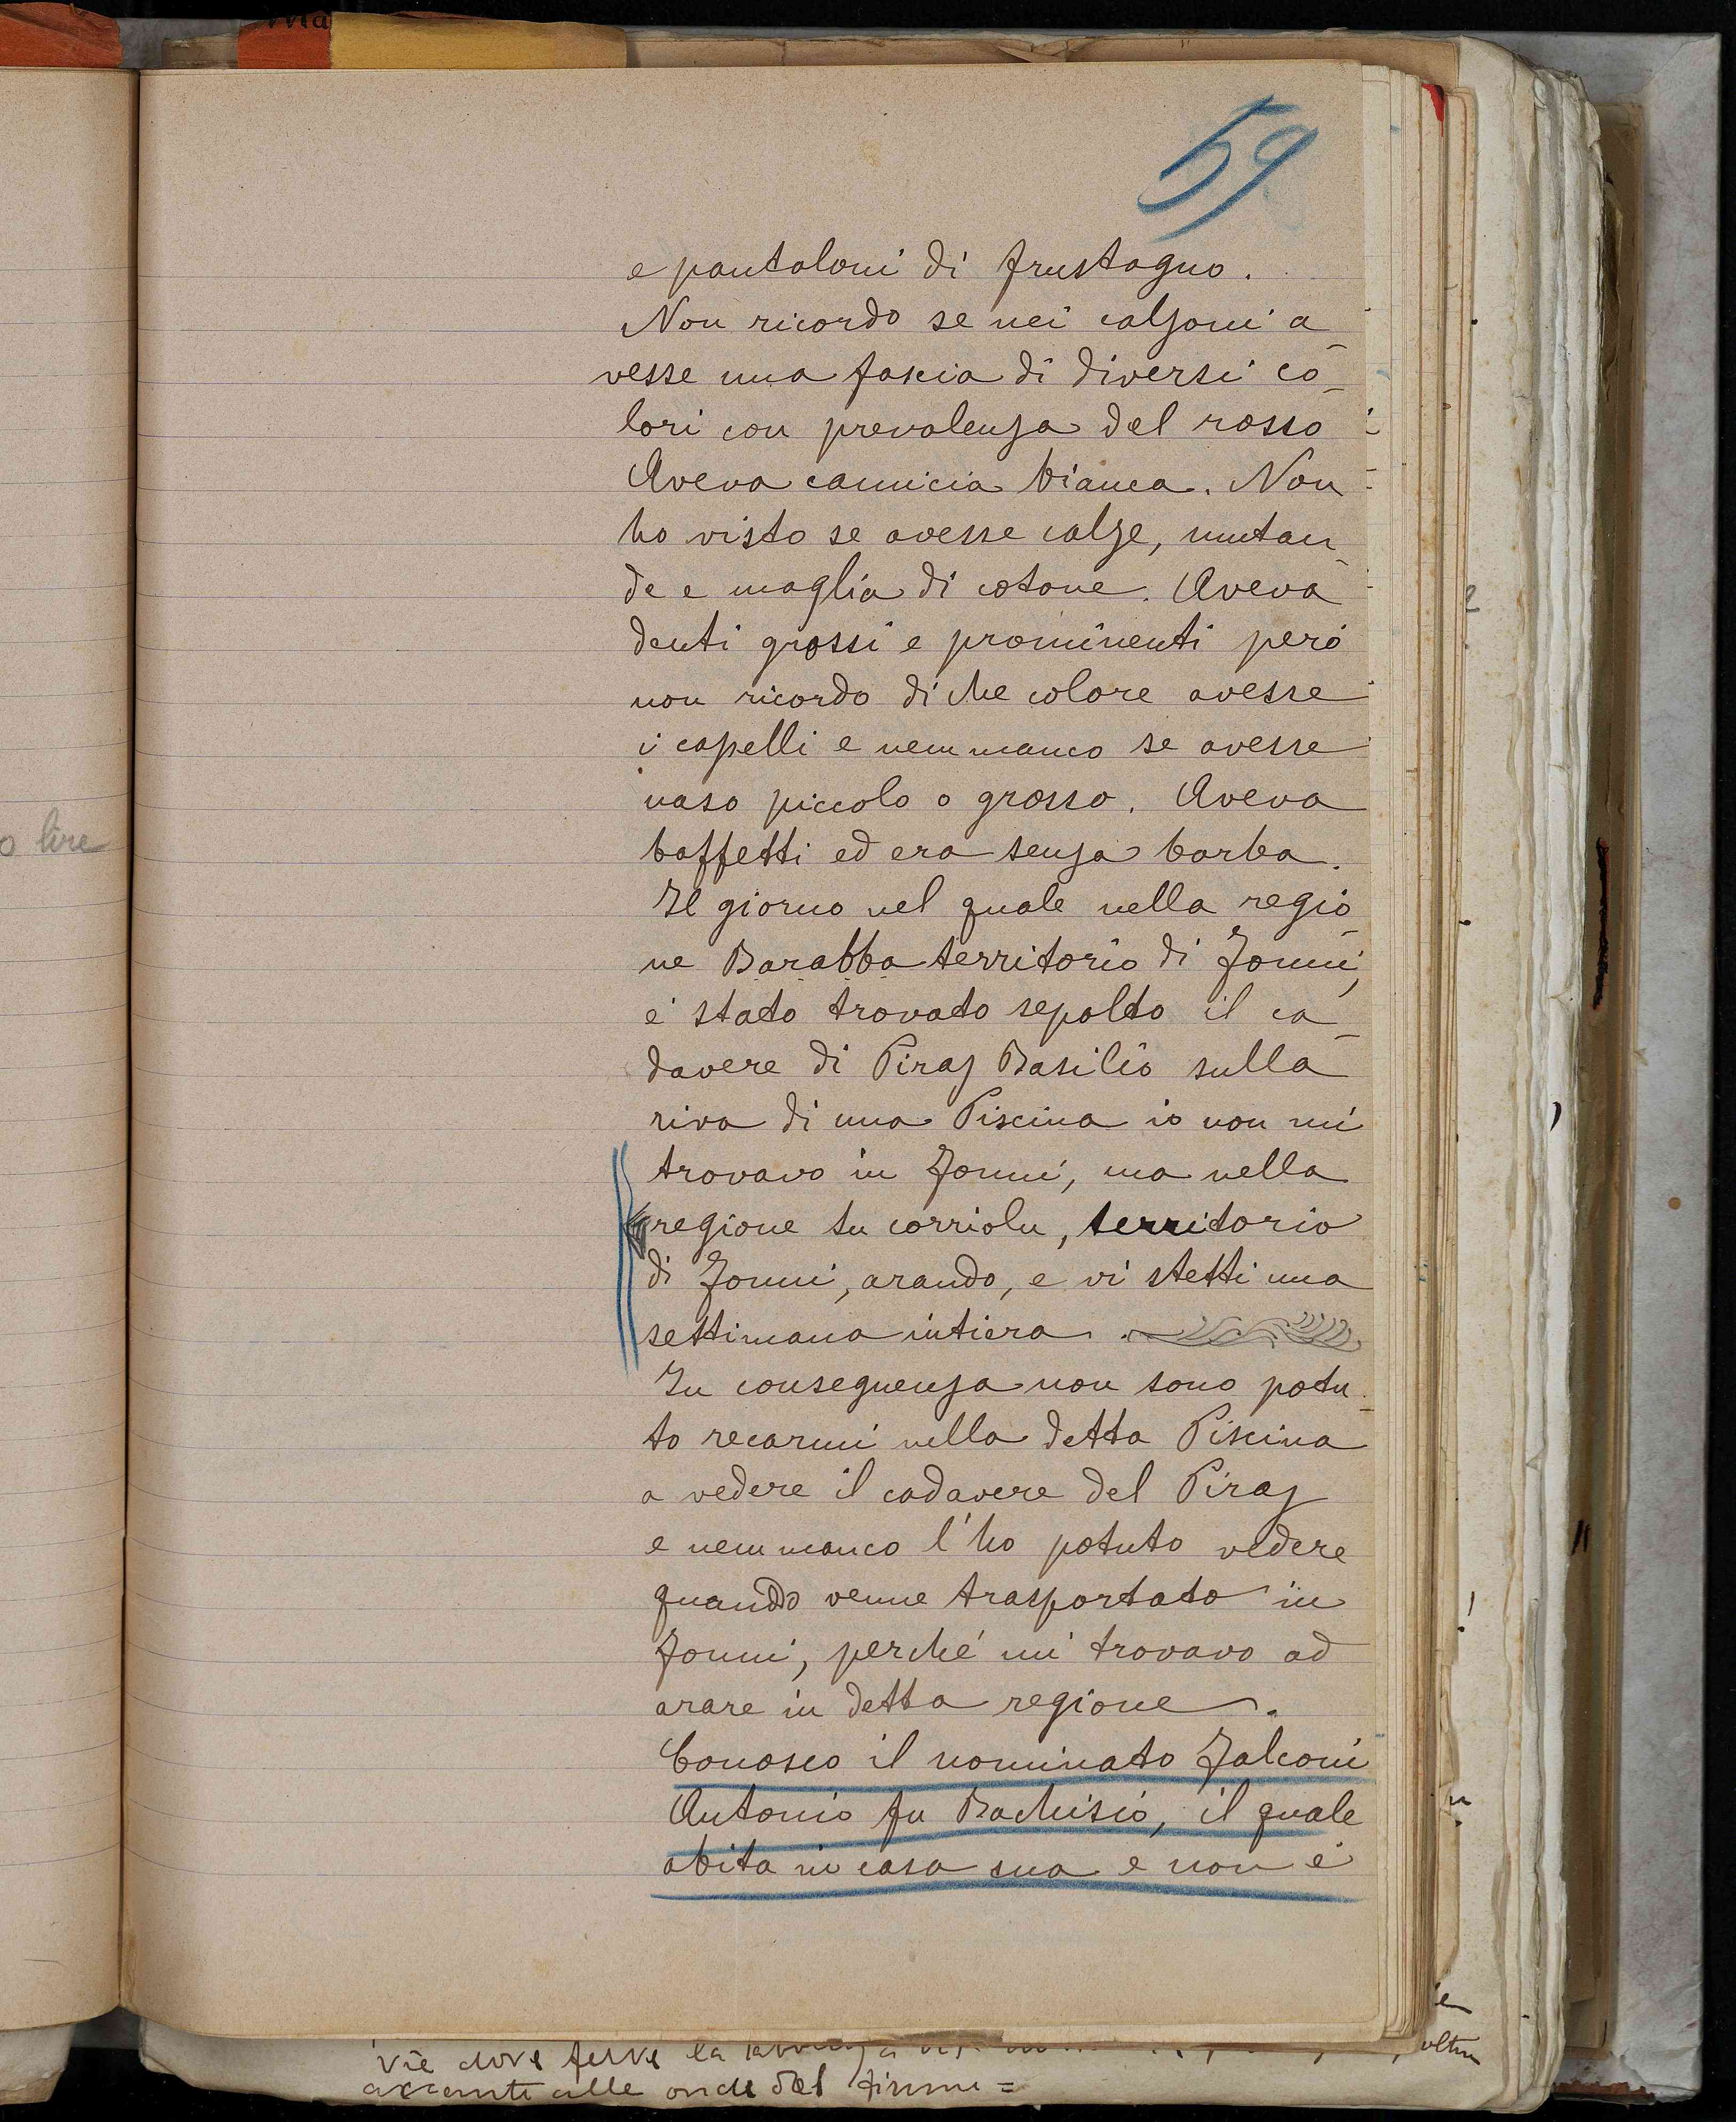 59
e pantaloni di frustagno.
Non ricordo se nei calzoni a_
vesse una fascia di diversi co_
lori con prevalenza del rosso
Aveva camicia bianca. Non
ho visto se avesse calze, mutan_
de e maglia di cotone. Aveva
denti grossi e prominenti però
non ricordo di che colore avesse
i capelli e nemmanco se avesse
naso piccolo o grosso. Aveva
baffetti ed era senza barba.
Il giorno nel quale nella regio_
ne Barabba territorio di Fonni,
è stato trovato sepolto il ca_
davere di Piraz Basilio sulla
riva di una Piscina io non mi
trovavo in Fonni, ma nella
regione su corriolu, territorio
di Fonni, arando, e vi stetti una
settimana intiera.
In conseguenza non sono potu_
to recarmi nella detta Piscina
a vedere il cadavere del Piraz
e nemmanco l'ho potuto vedere
quando venne trasportato in
Fonni, perché mi trovavo ad
arare in detta regione.
Conosco il nominato Falconi
Antonio fu Bachisio, il quale
abita in casa sua e non è
o lire
vie dove ferve la
accanto alle onde del fiume =
oltre